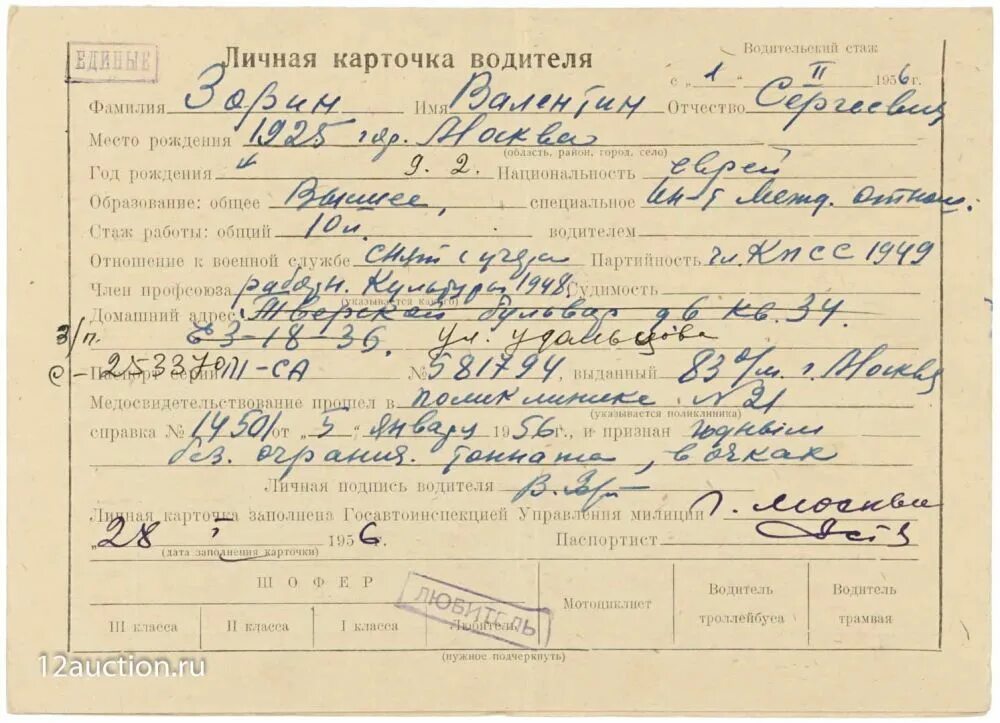 ЕДИНЫЕ
Личная карточка водителя
Водительский стаж
с „ 1 " II 1956 г.
Фамилия Зорин Имя Валентин Отчество Сергеевич
Место рождения 1925 год. Москва
(область, район, город, село)
Год рождения 9. 2. Национальность еврей
Образование: общее Высшее, специальное Ин-т Межд. отнош.
Стаж работы: общий 10 л. водителем
Отношение к военной службе снят с учета Партийность чл. КПСС 1949
Член профсоюза работн. Культуры 1948 Судимость
(указывается какого)
Домашний адрес Тверской бульвар д 6 кв. 34.
З/п. Б 3-18-36. ул. Удальцова
253370
Паспорт серии III-СА № 581794, выданный 83 о/м. г. Москвы
Медосвидетельствование прошел в поликлинике N 21
(указывается поликлиника)
справка № 14501 от „ 5 " Января 1956 г., и признан годным
без. огранич. тоннажа, в очках
Личная подпись водителя В. Зор
Личная карточка заполнена Госавтоинспекцией Управления милиции г. Москвы
„ 28 " I 1956 г. Паспортист
(дата заполнения карточки)
ШОФЕР
III класса II класса I класса Любитель
ЛЮБИТЕЛЬ
Мотоциклист
Водитель троллейбуса
Водитель трамвая
(нужное подчеркнуть)
12auction.ru